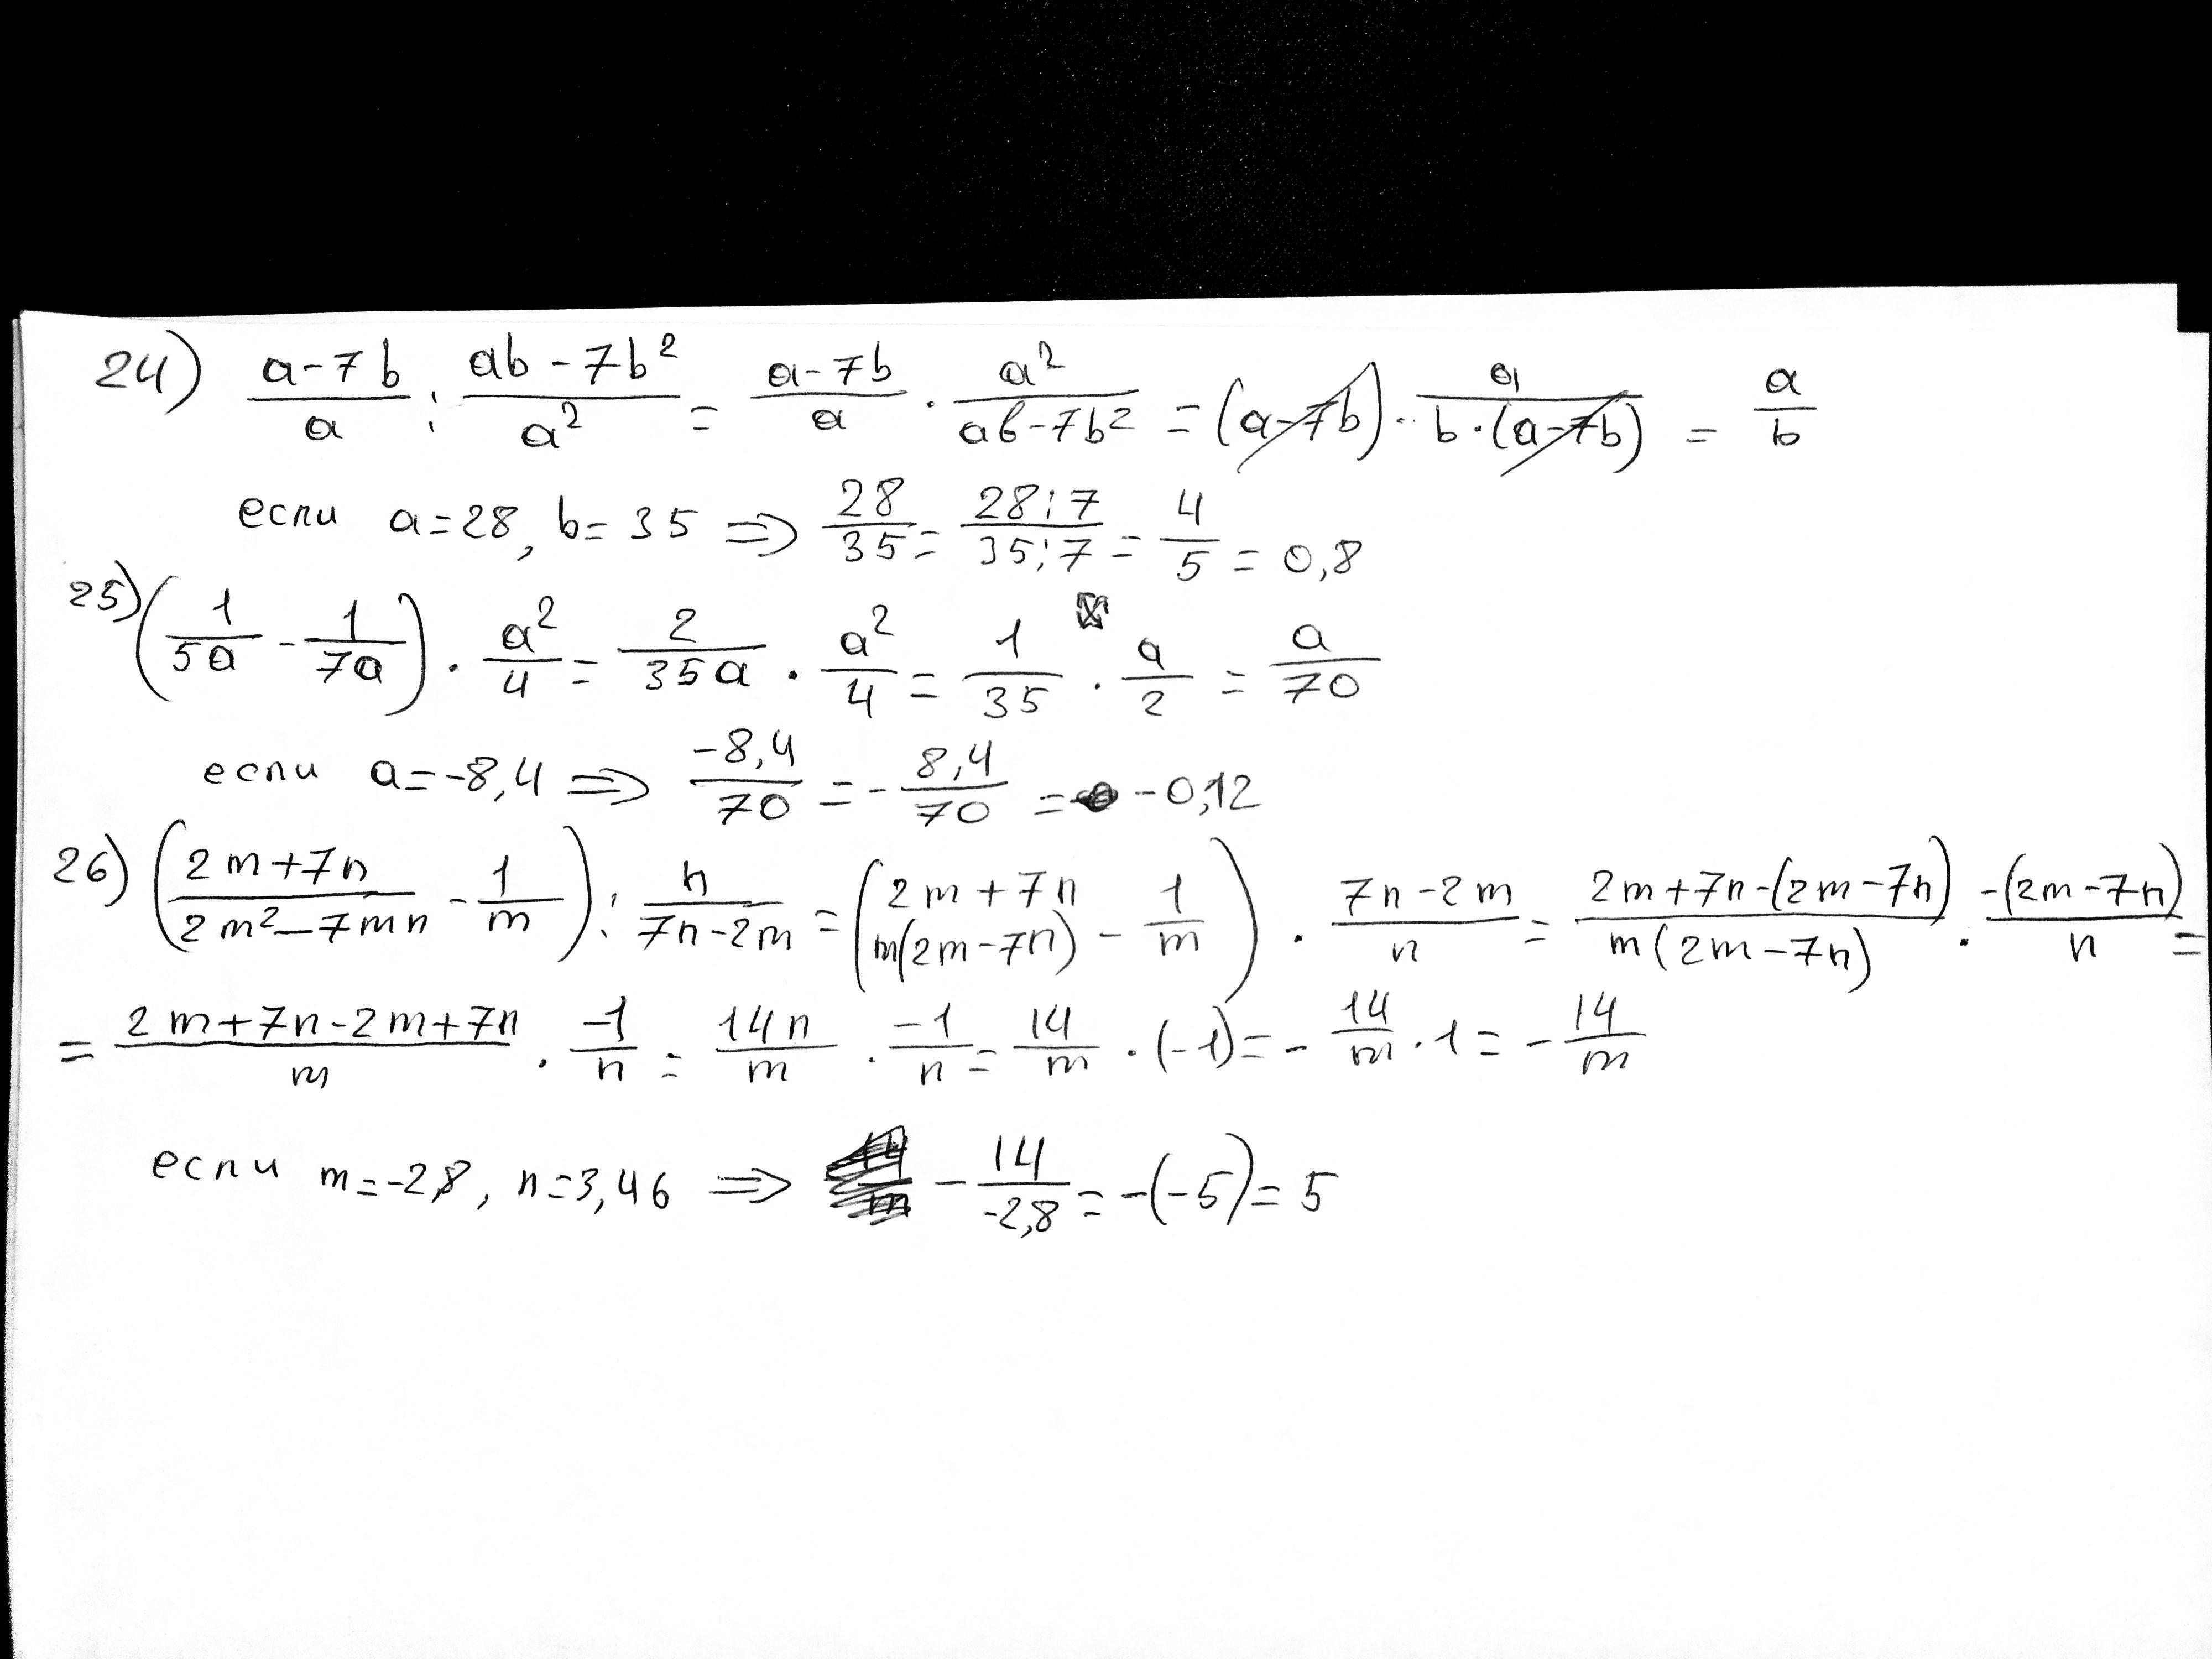 24) \frac{a-7b}{a} : \frac{ab-7b^2}{a^2} = \frac{a-7b}{a} \cdot \frac{a^2}{ab-7b^2} = (a-7b) \cdot \frac{a}{b \cdot (a-7b)} = \frac{a}{b}
если a=28, b=35 ⇒ \frac{28}{35} = \frac{28:7}{35:7} = \frac{4}{5} = 0,8
25) (\frac{1}{5a} - \frac{1}{7a}) \cdot \frac{a^2}{4} = \frac{2}{35a} \cdot \frac{a^2}{4} = \frac{1}{35} \cdot \frac{a}{2} = \frac{a}{70}
если a=-8,4 ⇒ \frac{-8,4}{70} = -\frac{8,4}{70} = -0,12
26) (\frac{2m+7n}{2m^2-7mn} - \frac{1}{m}) : \frac{n}{7n-2m} = (\frac{2m+7n}{m(2m-7n)} - \frac{1}{m}) \cdot \frac{7n-2m}{n} = \frac{2m+7n-(2m-7n)}{m(2m-7n)} \cdot \frac{-(2m-7n)}{n} =
= \frac{2m+7n-2m+7n}{m} \cdot \frac{-1}{n} = \frac{14n}{m} \cdot \frac{-1}{n} = \frac{14}{m} \cdot (-1) = -\frac{14}{m} \cdot 1 = -\frac{14}{m}
если m=-2,8, n=3,46 ⇒ -\frac{14}{-2,8} = -(-5) = 5